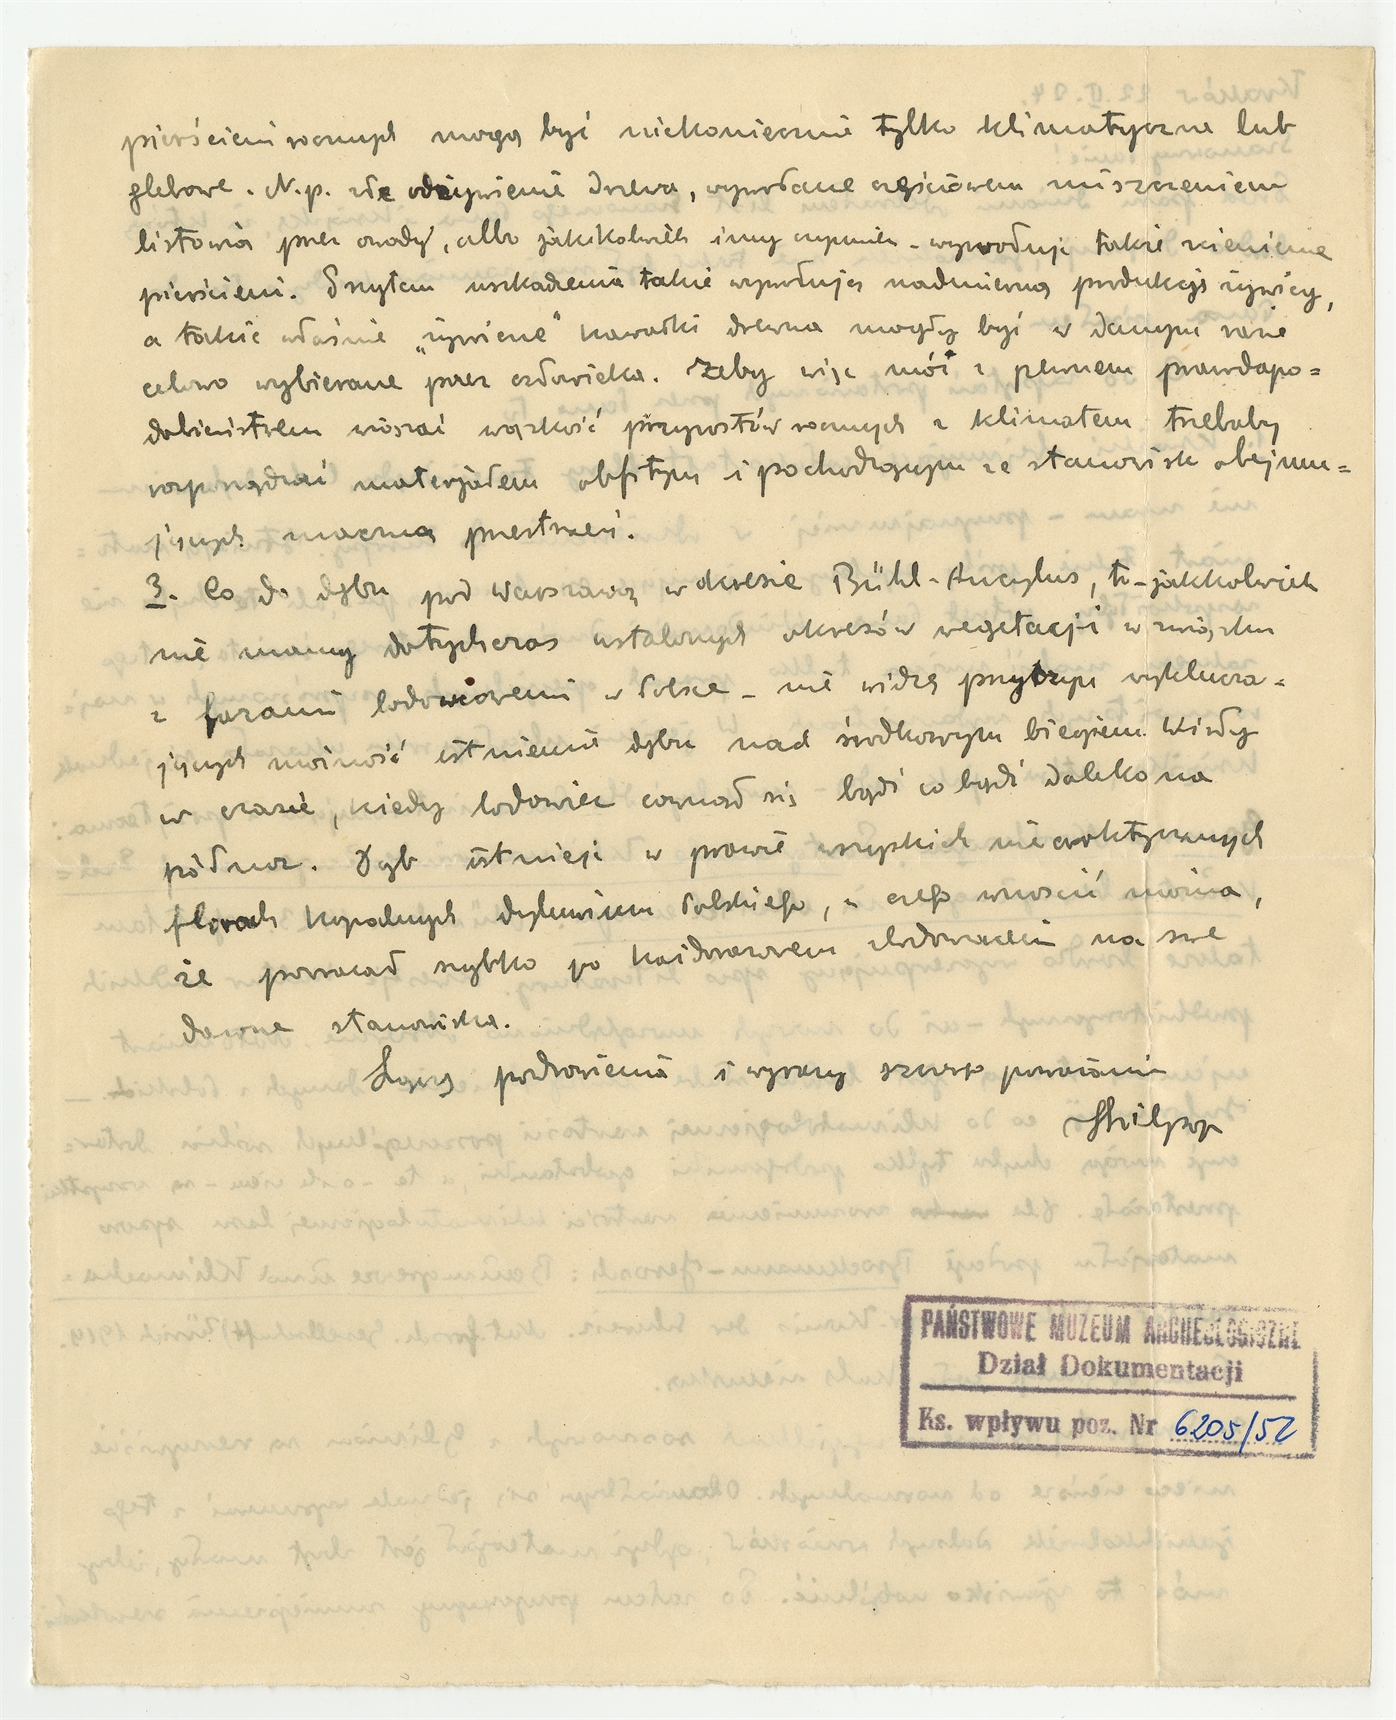 pierścieni rocznych mogą być niekoniecznie tylko klimatyczne lub
glebowe. N.p. złe odżywienie drzewa, wywołane częściowem niszczeniem
listowia przez owady, albo jakikolwiek inny czynnik - wywoduje takie cienienie
pierścieni. Przytem uszkadzenia takie wywołują nadmierną produkcję żywicy,
a takie właśnie „żywiczne" kawałki drewna mogły być w danym razie
celowo wybierane przez człowieka. Żeby więc móc z pewnem prawdopo=
dobieństwem wiązać wąskość przyrostów rocznych z klimatem trzebaby
rozporządzać materjałem obfitym i pochodzącym ze stanowisk obejmu=
jących znaczną przestrzeń.
3. Co do dębu pod Warszawą w okresie Bühl-Ancylus, to - jakkolwiek
nie mamy dotychczas ustalonych okresów wegetacji w związku
z fazami lodowcowemi w Polsce - nie widzę przyczyn wyklucza=
jących możność istnienia dębu nad środkowym biegiem Wisły
w czasie, kiedy lodowiec cofnął się bądź co bądź daleko na
północ. Dąb istnieje w prawie wszystkich niearktycznych
florach kopalnych dyluwium Polskiego, z czego wnosić można,
że powracał szybko po każdorazowem zlodowaceniu na swe
dawne stanowiska.
Łączę pozdrowienia i wyrazy szczerego poważania
PAŃSTWOWE MUZEUM ARCHEOLOGICZNE
Dział Dokumentacji
Ks. wpływu poz. Nr 6205/52